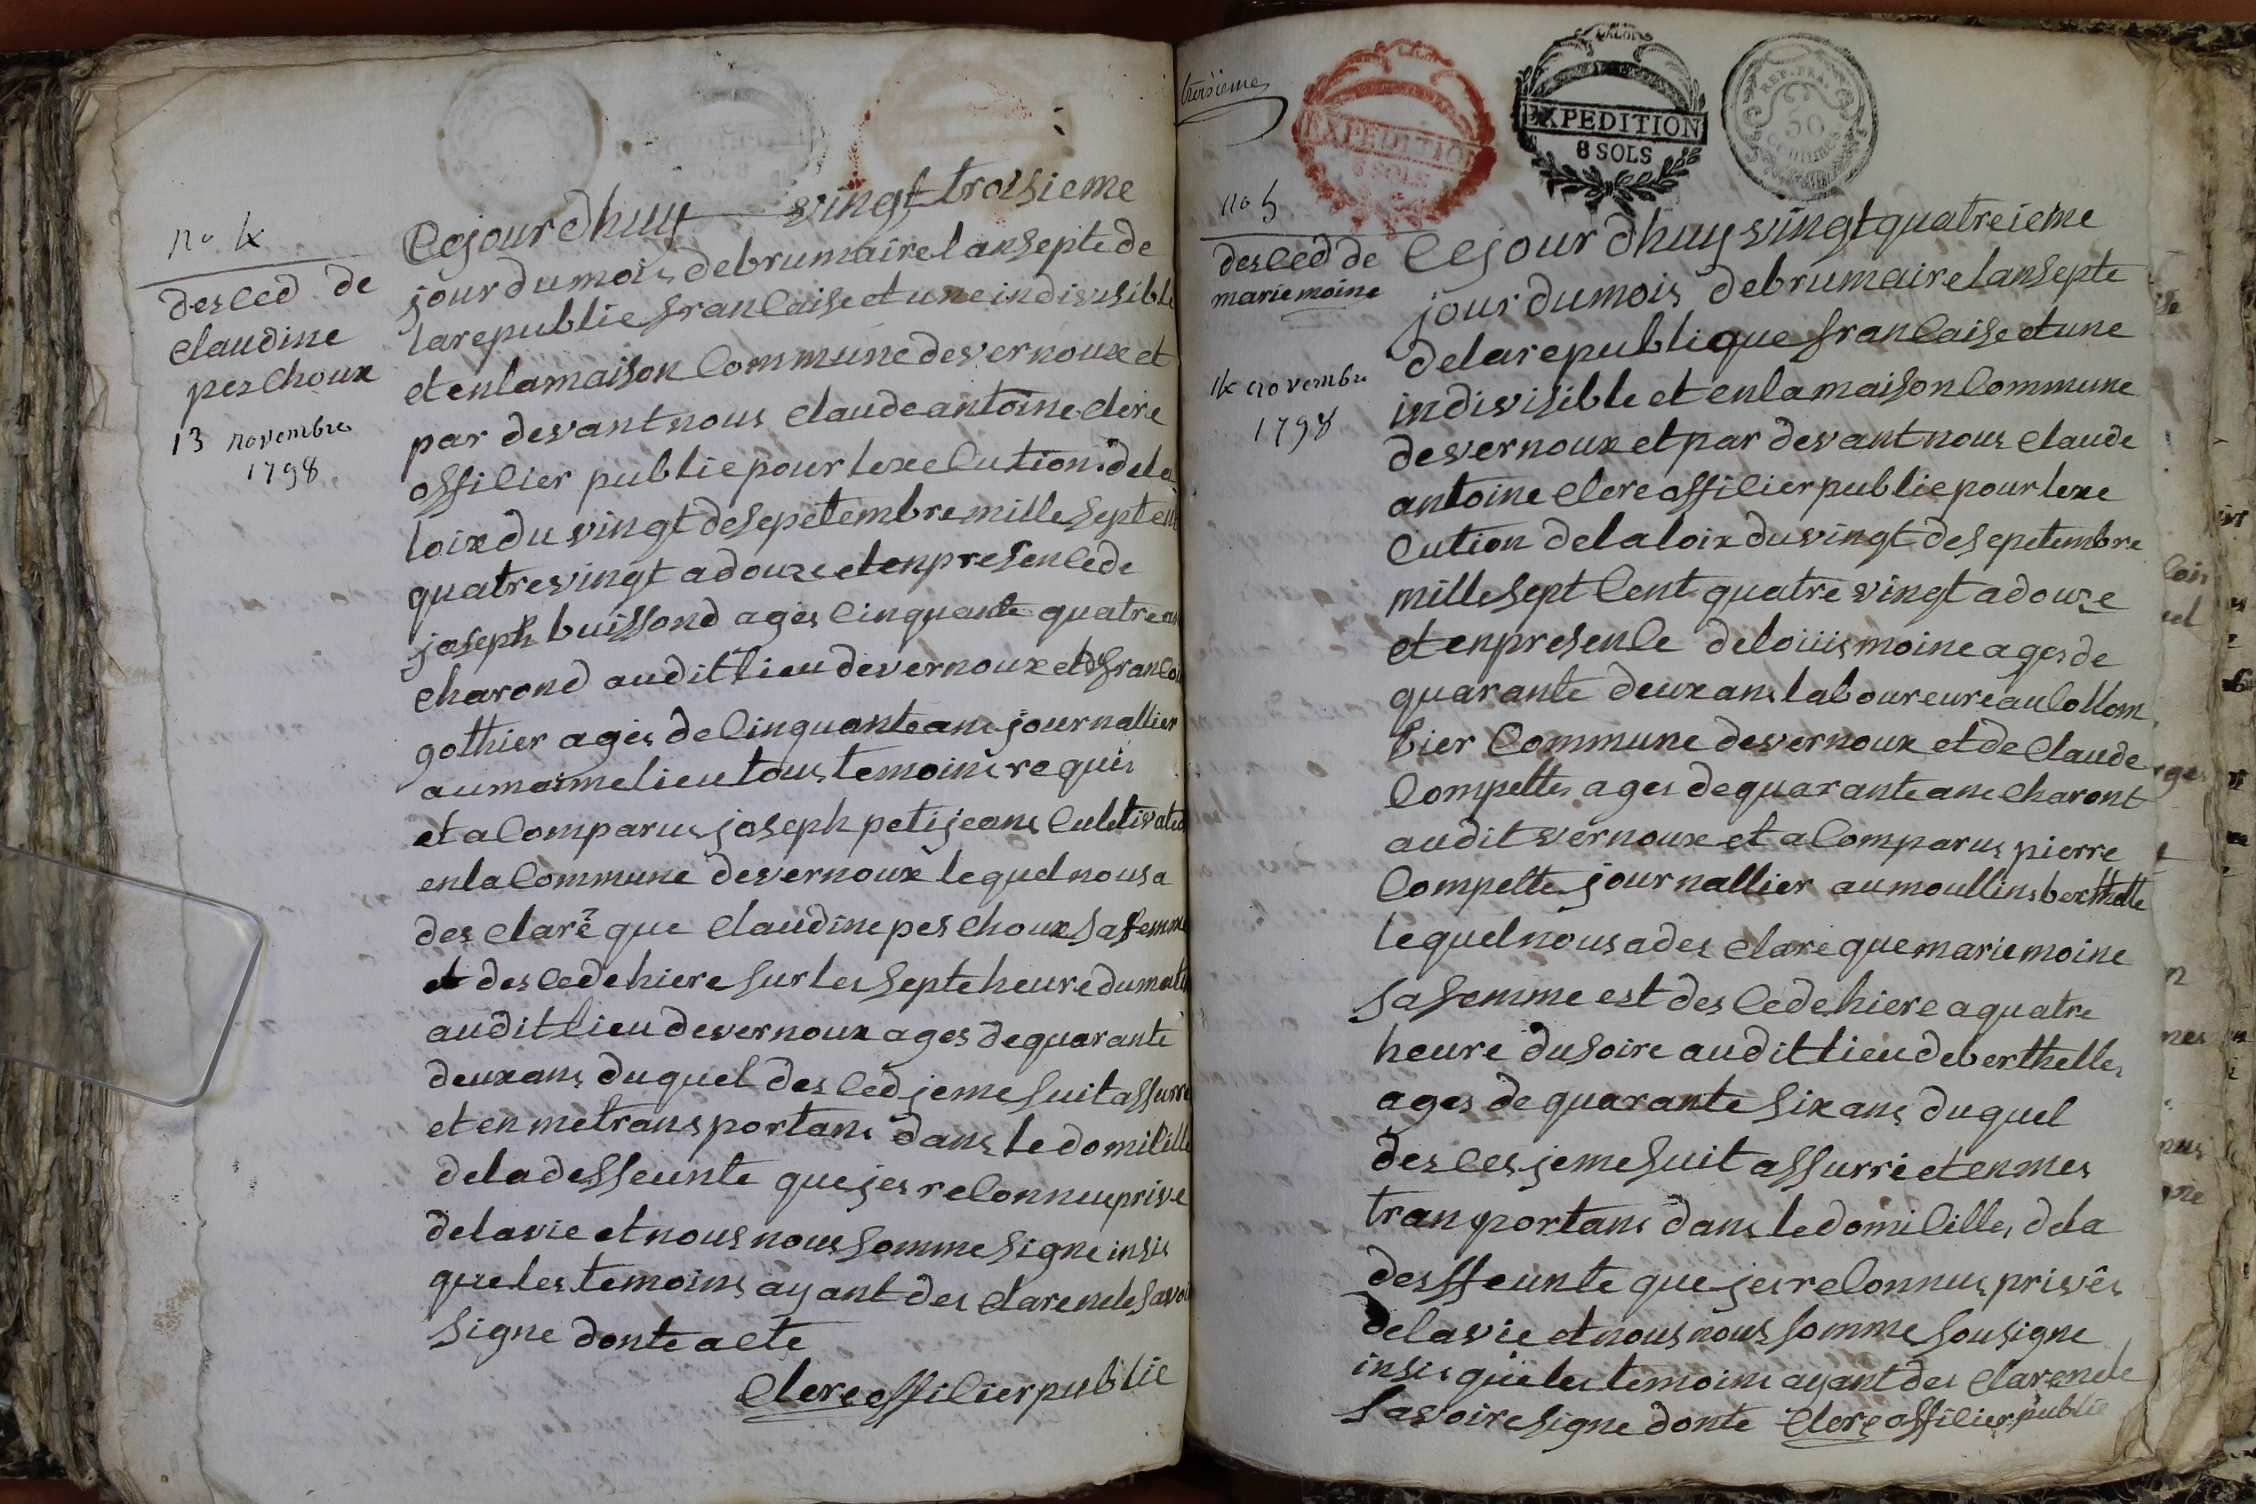 no 4
desced de
claudine
peschoux
13 novembre
1798
Cejourdhuy vingt troisieme
jour du mois debrumaire lansepte de
larepublic francaise et une indivisible
et enlamaison Commune devernoux et
par devant nous claude antoine clerc
officier public pour lexecution dela
loix du vingt desepetembre mille septcent
quatrevingt adouze et enpresencede
joseph buissond ages Cinquante quatre ans
charond audit lieu devernoux et de francois
gothier ages de Cinquante ans journallier
aumaime lieu tous temoins requis
et a Comparus joseph petijeans Culetivateur
enla Commune devernoux lequel nous a
des claré que claudine peschoux sa femme
et descede hiere sur les septe heure du matin
audit lieu devernoux ages de quarante
deux ans duquel desced jeme suit assurré
et en metransportans dans le domicille
de la deffeunte que jes reconnue privé
delavie et nous nous somme signe insis
que les temoins ayant des clare nele savoir
signe donte acte
Clerc officier public
troisieme
EXPEDITION
8 SOLS
EXPEDITION
8 SOLS
REP. FRA.
50
Centimes
no 5
desced de
marie moine
14 novembre
1798
Cejour dhuy vingt quatreieme
jour dumois debrumaire lansepte
delarepublique francaise et une
indivisible et enlamaison Commune
devernoux et par devant nous claude
antoine clerc officier public pour lexe
Cution delaloix duvingt desepetembre
mille sept Cent quatre vingt adouze
et enpresence delouis moine ages de
quarante deux ans laboureure au Collom
bier Commune devernoux et de Claude
Compette ages dequarante ans charont
audit vernoux et a Comparus pierre
Compette journallier aumoullins berthelle
lequel nous ades clare que marie moine
sa femme est des Cede hiere a quatre
heure dusoire audit lieu deberthelles
ages de quarante six ans duquel
desces jeme suit assurré et en mes
tranportans dans ledomicilles dela
desffeunte que jes reconnus privês
delavie et nous nous somme sousigne
insis que les temoins ayant des clare nele
savoire signe donte Clerc officier public